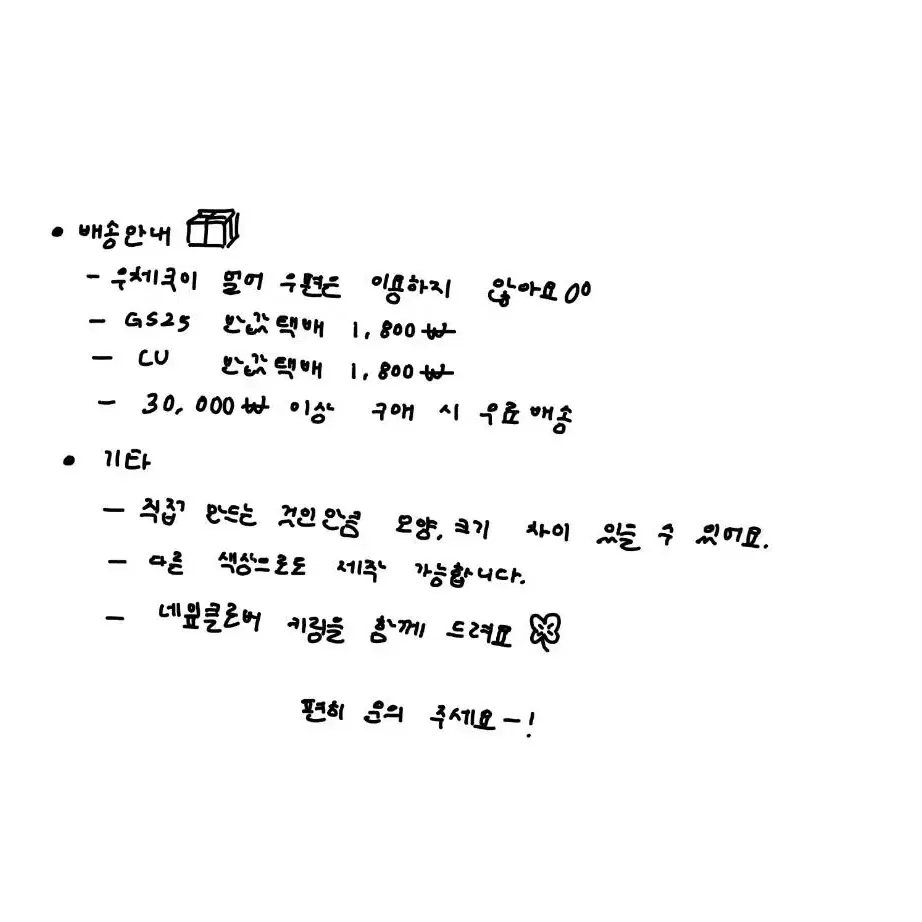 • 배송안내
- 우체국이 멀어 우편은 이용하지 않아요 00
- GS25 반값택배 1,800₩
- CU 반값택배 1,800₩
- 30,000₩ 이상 구매 시 무료배송
• 기타
- 직접 만드는 것인만큼 모양, 크기 차이 있을 수 있어요.
- 다른 색상으로도 제작 가능합니다.
- 네잎클로버 키링을 함께 드려요
편히 문의 주세요-!